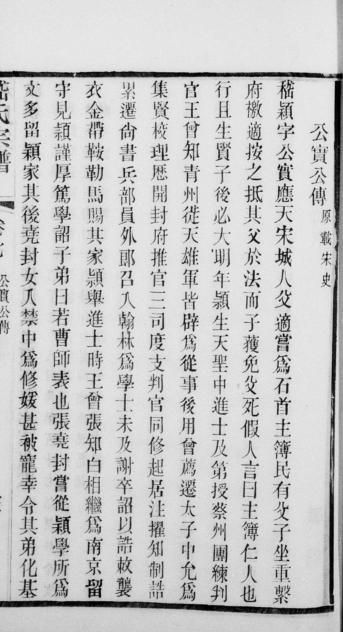 公實公傳 原載宋史
嵇穎字公實應天宋城人父適嘗爲石首主簿民有父子坐重繫
府檄適按之抵其父於法而子獲免父死假人言曰主簿仁人也
行且生賢子後必大明年穎生天聖中進士及第授蔡州團練判
官王曾知青州徙天雄軍皆辟爲從事後用曾薦遷太子中允爲
集賢校理歷開封府推官三司度支判官同修起居注擢知制誥
累遷尚書兵部員外郎召入翰林爲學士未及謝卒詔以誥敕襲
衣金帶鞍勒馬賜其家穎舉進士時王曾張知白相繼爲南京留
守見穎謹厚篤學詔子弟曰若曹師表也張堯封嘗從穎學所爲
文多留穎家其後堯封女入禁中爲修媛甚被寵幸令其弟化基
嵇氏宗譜
公實公傳